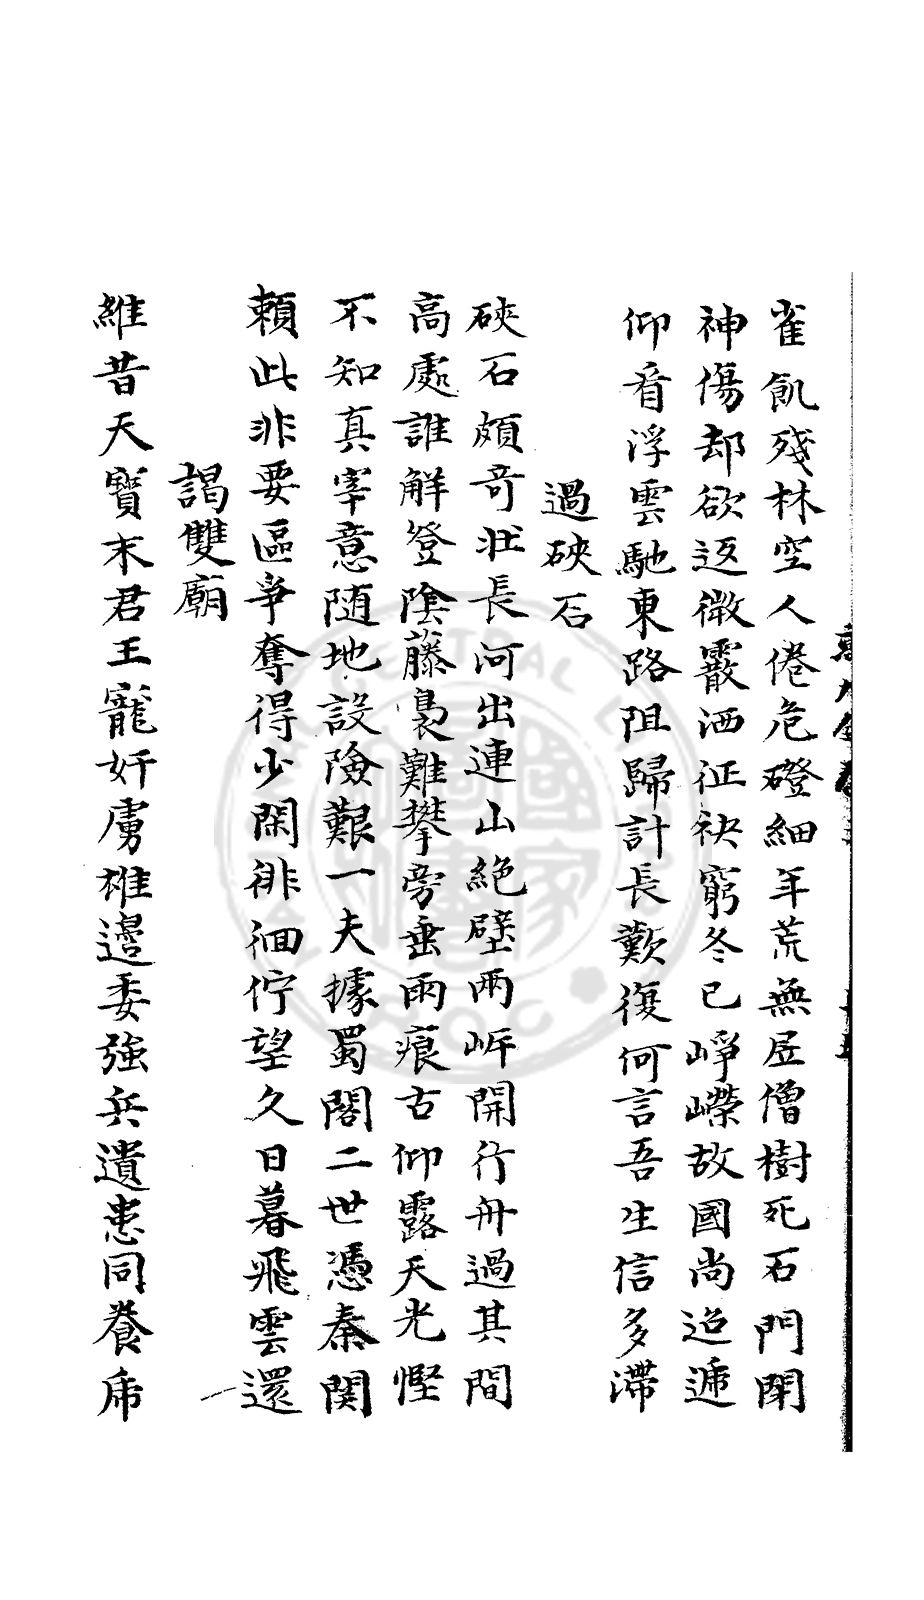 雀飢殘林空人倦危磴細年荒無居僧樹死石門閉
神傷却欲返微霰洒征袂窮冬已崢嶸故國尚迢遞
仰看浮雲馳東路阻歸計長歎復何言吾生信多滯
過硤石
硤石頗奇壯長河出連山絶壁兩岸開行舟過其間
高處誰解登陰藤裊難攀旁垂雨痕古仰露天光慳
不知真宰意随地設險艱一夫據蜀閣二世憑秦関
賴此非要區爭奪得少閑徘徊佇望久日暮飛雲還
謁雙廟
維昔天寶末君王寵奸虜雄邊委強兵遺患同養虎